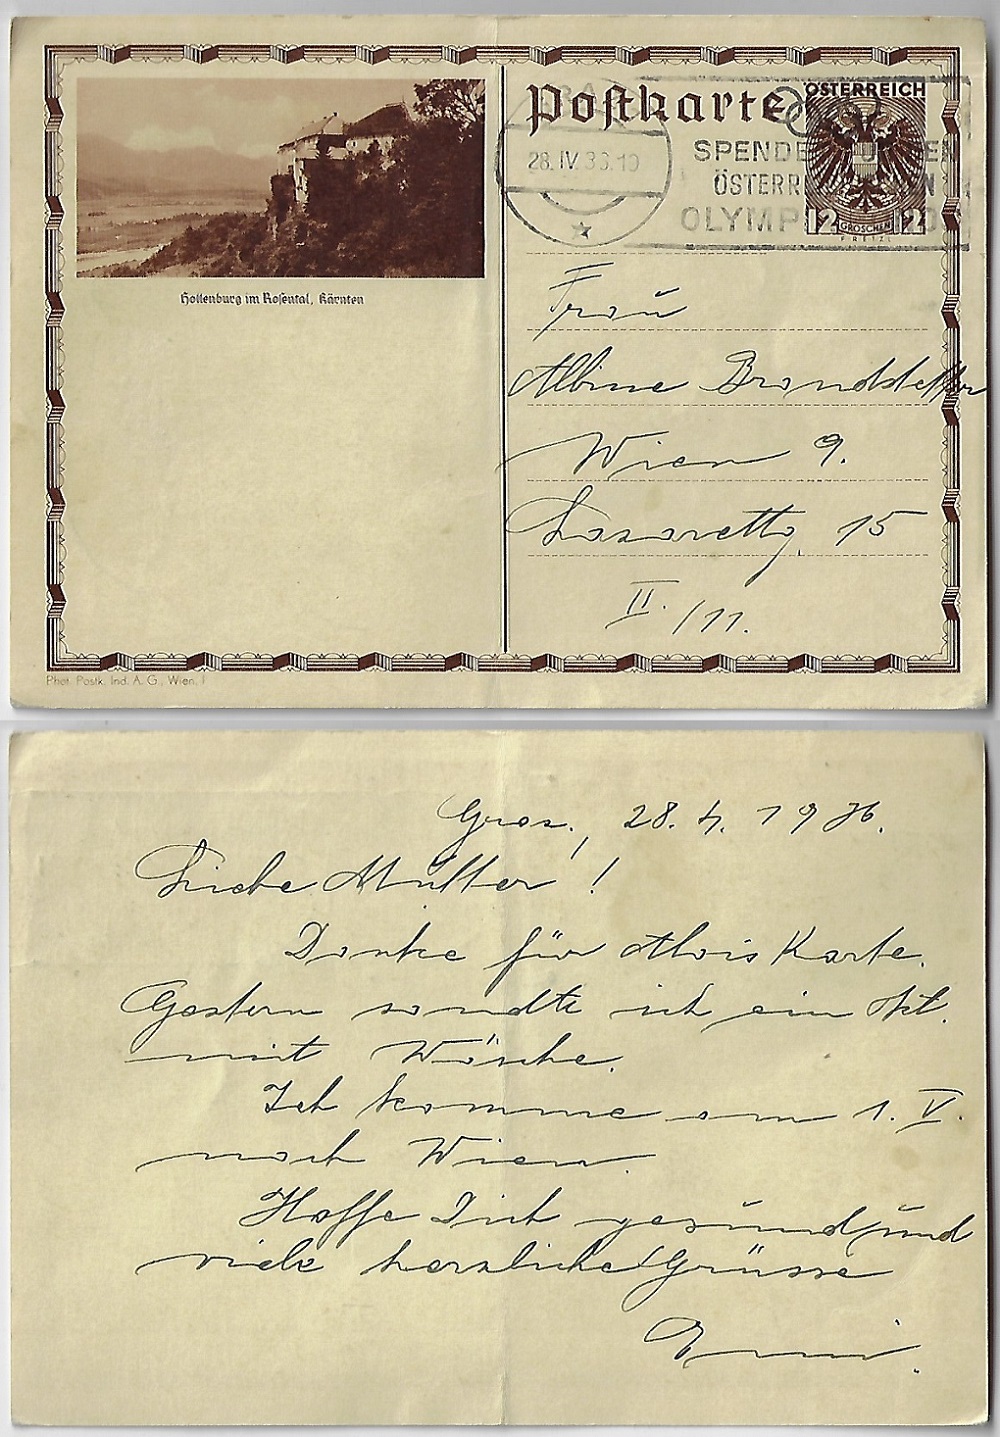 Postkarte
ÖSTERREICH
28.IV.36.19
SPENDE
ÖSTERR
OLYMP
12 GROSCHEN 12
PRETZL
Hollenburg im Rosental, Kärnten
Frau
Albine Brandstetter
Wien 9.
Lazarettg. 15
II./11.
Phot. Postk. Ind. A. G., Wien, I
Graz, 28. 4. 1936.
Liebe Mutter!
Danke für Alois Karte.
Gestern sandte ich ein Pkt.
mit Wäsche.
Ich komme am 1. V.
nach Wien.
Hoffe Dich gesund und
viele herzliche Grüsse